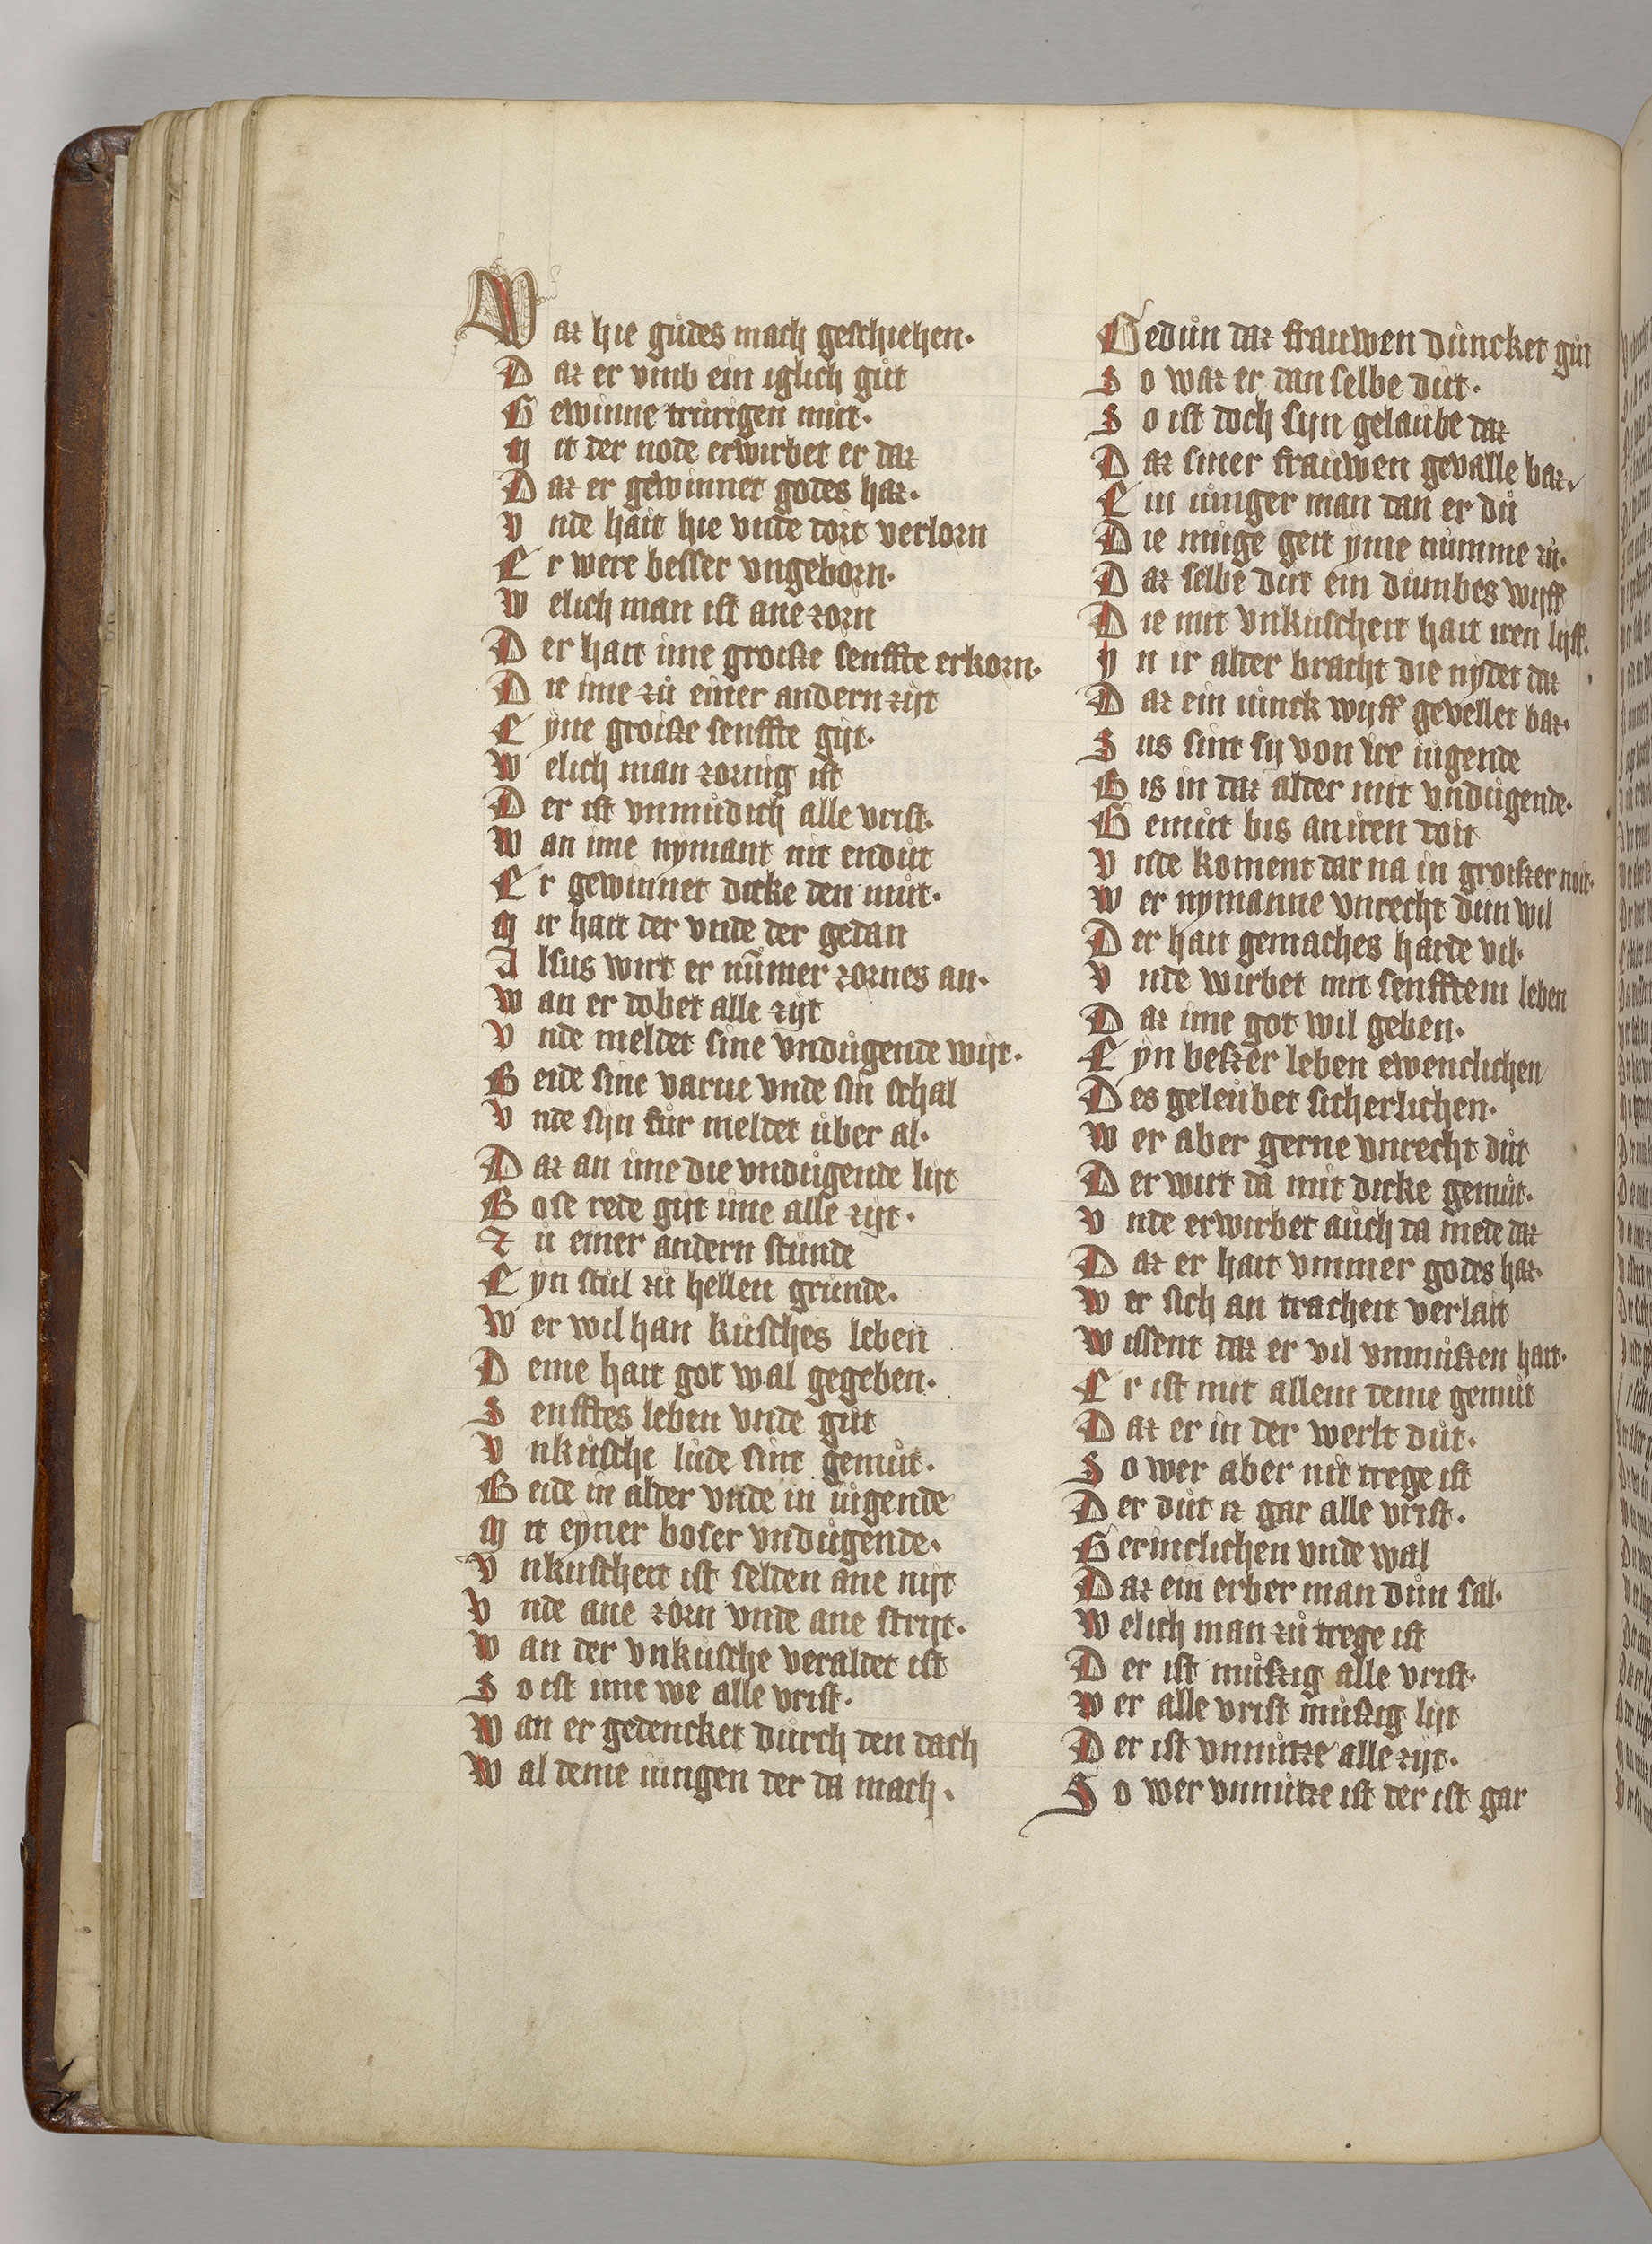 Waz hie gůdes mach geschiehen.
Daz er vmb ein iglich gůt
Gewinne trůrigen můt.
Mit der node erwirbet er daz
Daz er gewinnet godes haz.
Vnde hait hie vnde dort verlorn
Er were besser vngeborn.
Welich man ist ane zorn
Der hait ime groiße senffte erkorn.
Die ime zů einer andern zijt
Eyne groiße senffte gijt.
Welich man zornig ist
Der ist vnmůdich alle vrist.
Wan ime nymant nit endůt
Er gewinnet dicke den můt.
Mir hait der vnde der gedan
Alsus wirt er nům̄er zornes an.
Wan er dobet alle zijt
Vnde meldet sine vndůgende wijt.
Beide sine varue vnde sin schal
Vnde sijn fůr meldet ůber al.
Daz an ime die vndůgende lijt
Bose rede gijt ime alle zijt.
Zů einer andern stůnde
Eyn stůl zů hellen grůnde.
Wer wil han kůsches leben
Deme hait got wal gegeben.
Senfftes leben vnde gůt
Vnkůsche lůde sint gemůt.
Beide in alder vnde in iůgende
Mit eyner boser vndůgende.
Vnkuscheit ist selden ane nijt
Vnde ane zorn vnde ane strijt.
Wan der vnkůsche veraldet ist
So ist ime we alle vrist.
Wan er gedencket důrch den dach
Wal deme iůngen der da mach.
Gedůn daz frauwen důncket gůt
So waz er dan selbe důt.
So ist doch sijn gelaůbe daz
Daz siner fraůwen gevalle baz.
Ein iůnger man dan er dů
Die můge geit yme nůmme zů.
Daz selbe důt ein důmbes wijff
Die mit vnkůscheit hait iren lijff.
Yn ir alder bracht die nydet daz
Daz ein iůnck wijff gevellet baz.
Sus sint sij von ire iůgende
Bis in daz alder mit vndůgende.
Gemůt bis an iren doit
Vnde koment dar na in groißer noit.
Wer nymanne vnrecht důn wil
Der hait gemaches harde vil.
Vnde wirbet mit senfftem leben
Daz ime got wil geben.
Eyn beßer leben ewenclichen
Des geleůbet sicherlichen.
Wer aber gerne vnrecht důt
Der wirt da mit dicke gemůt.
Vnde erwirbet aůch da mede daz
Daz er hait vmmer godes haz.
Wer sich an tracheit verlait
Wissent daz er vil vnmůßen hait.
Er ist mit allem deme gemůt
Daz er in der werlt důt.
So wer aber nit trege ist
Der důt iz gar alle vrist.
Gerinclichen vnde wal
Daz ein erber man důn sal.
Welich man zů trege ist
Der ist můßig alle vrist.
Wer alle vrist můßig lijt
Der ist vnnůtze alle zijt.
So wer vnnůtze ist der ist gar